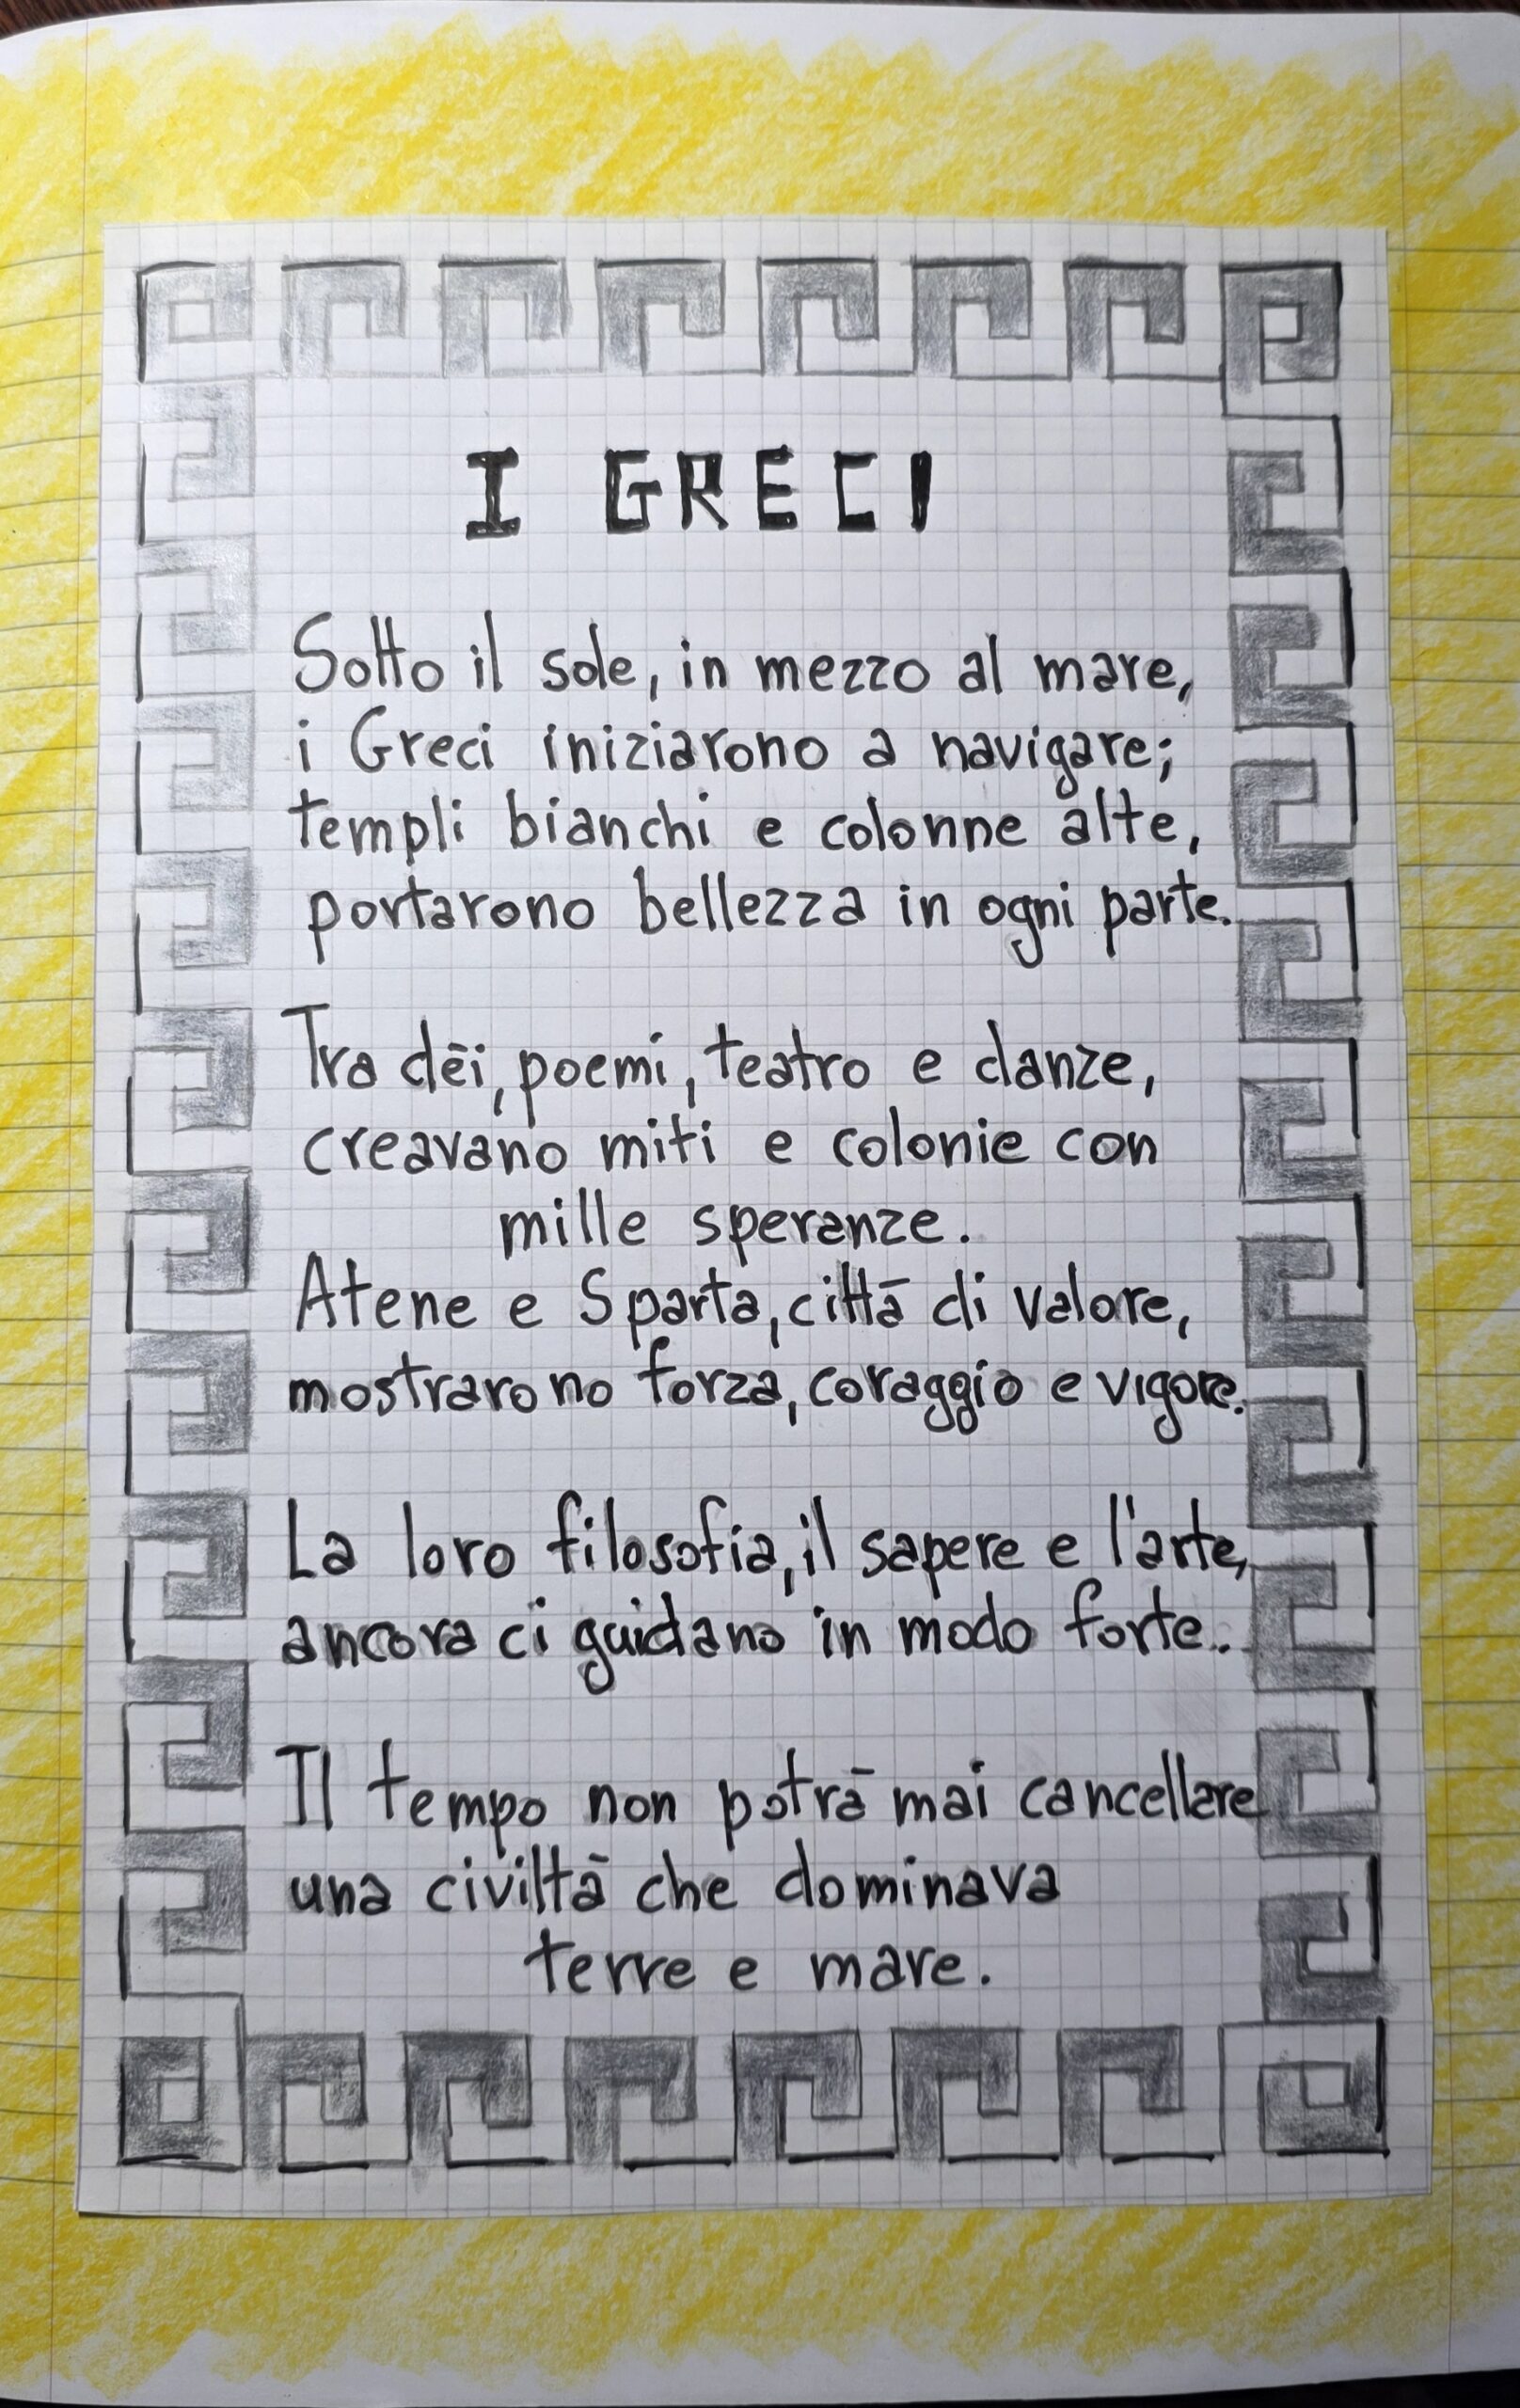 I GRECI
Sotto il sole, in mezzo al mare,
i Greci iniziarono a navigare;
templi bianchi e colonne alte,
portarono bellezza in ogni parte.
Tra dēi, poemi, teatro e danze,
creavano miti e colonie con
mille speranze.
Atene e Sparta, cittā di valore,
mostrarono forza, coraggio e vigore.
La loro filosofia, il sapere e l'arte,
ancora ci guidano in modo forte..
Il tempo non potrā mai cancellare
una civiltā che dominava
terre e mare.